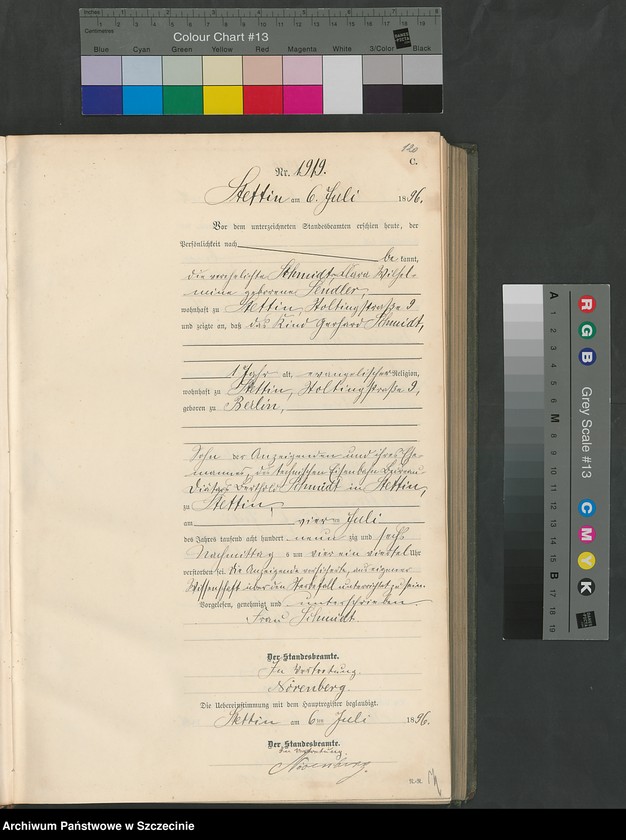 Colour Chart #13
Blue Cyan Green Yellow Red Magenta White 3/Color Black
120
C.
Nr. 1919.
Stettin am 6. Juli 1896.
Vor dem unterzeichneten Standesbeamten erschien heute, der
Persönlichkeit nach
be kannt,
die verehelichte Schmidt, Clara Wilhel-
mine geborene Sendler,
wohnhaft zu Stettin, Stoltingstraße 2
und zeigte an, daß das Kind Gerhard Schmidt,
1 Jahr alt, evangelischer Religion,
wohnhaft zu Stettin, Stoltingstraße 2,
geboren zu Berlin,
Sohn der Anzeigenden und ihres Ehe-
mannes, des technischen Eisenbahn Bureau
Diätars Berthold Schmidt in Stettin,
zu Stettin,
am vier Juli
des Jahres tausend acht hundert neun zig und sechs
Nachmittag s um vier ein viertel Uhr
verstorben sei. Die Anzeigende versicherte, aus eigener
Wissenschaft über den Sterbefall unterrichtet zu sein.
Vorgelesen, genehmigt und unterschrieben
Frau Schmidt.
Der Standesbeamte.
In Vertretung.
Nörenberg.
Die Uebereinstimmung mit dem Hauptregister beglaubigt.
Stettin am 6ten Juli 1896.
Der Standesbeamte.
In Vertretung.
Nörenberg.
Grey Scale #13
R G B
C M Y K
A 1 2 3 4 5 6 M 8 9 10 11 12 13 14 15 B 17 18 19
Archiwum Państwowe w Szczecinie